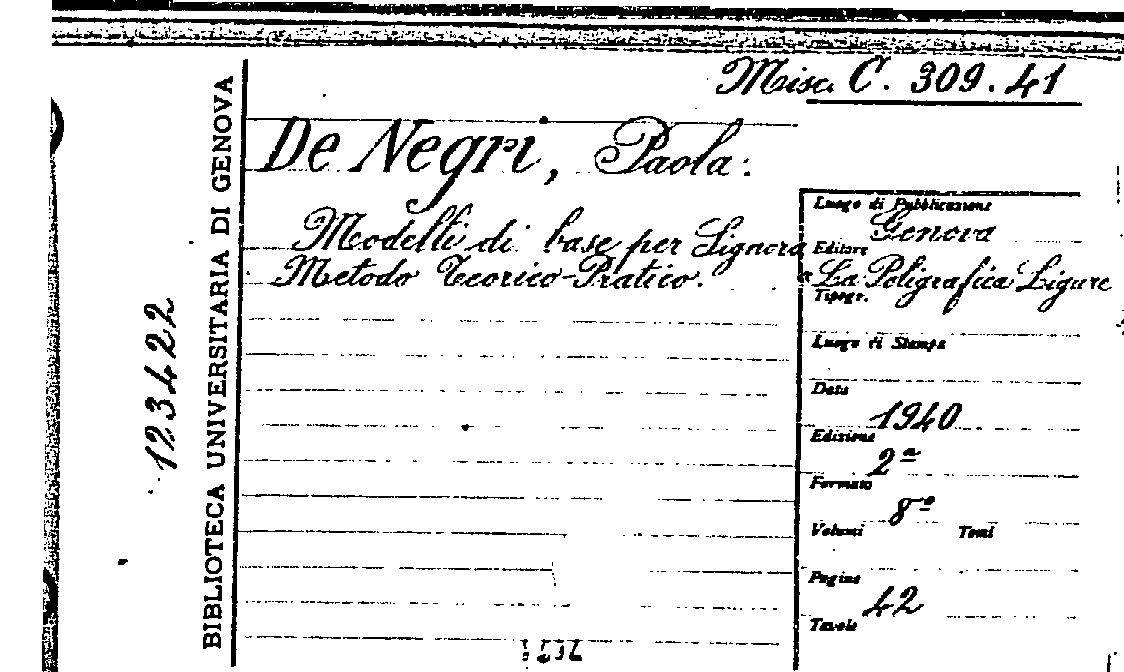 Misc. C. 309.41
De Negri, Paola:
Modelli di base per Signora
Metodo Teorico-Pratico.
Luogo di Pubblicazione
Genova
Editore
"La Poligrafica Ligure
Tipogr.
Luogo di Stampa
Data
1940
Edizione
2ª
Formato
8º
Volumi Tomi
Pagine
42
Tavole
BIBLIOTECA UNIVERSITARIA DI GENOVA
123422